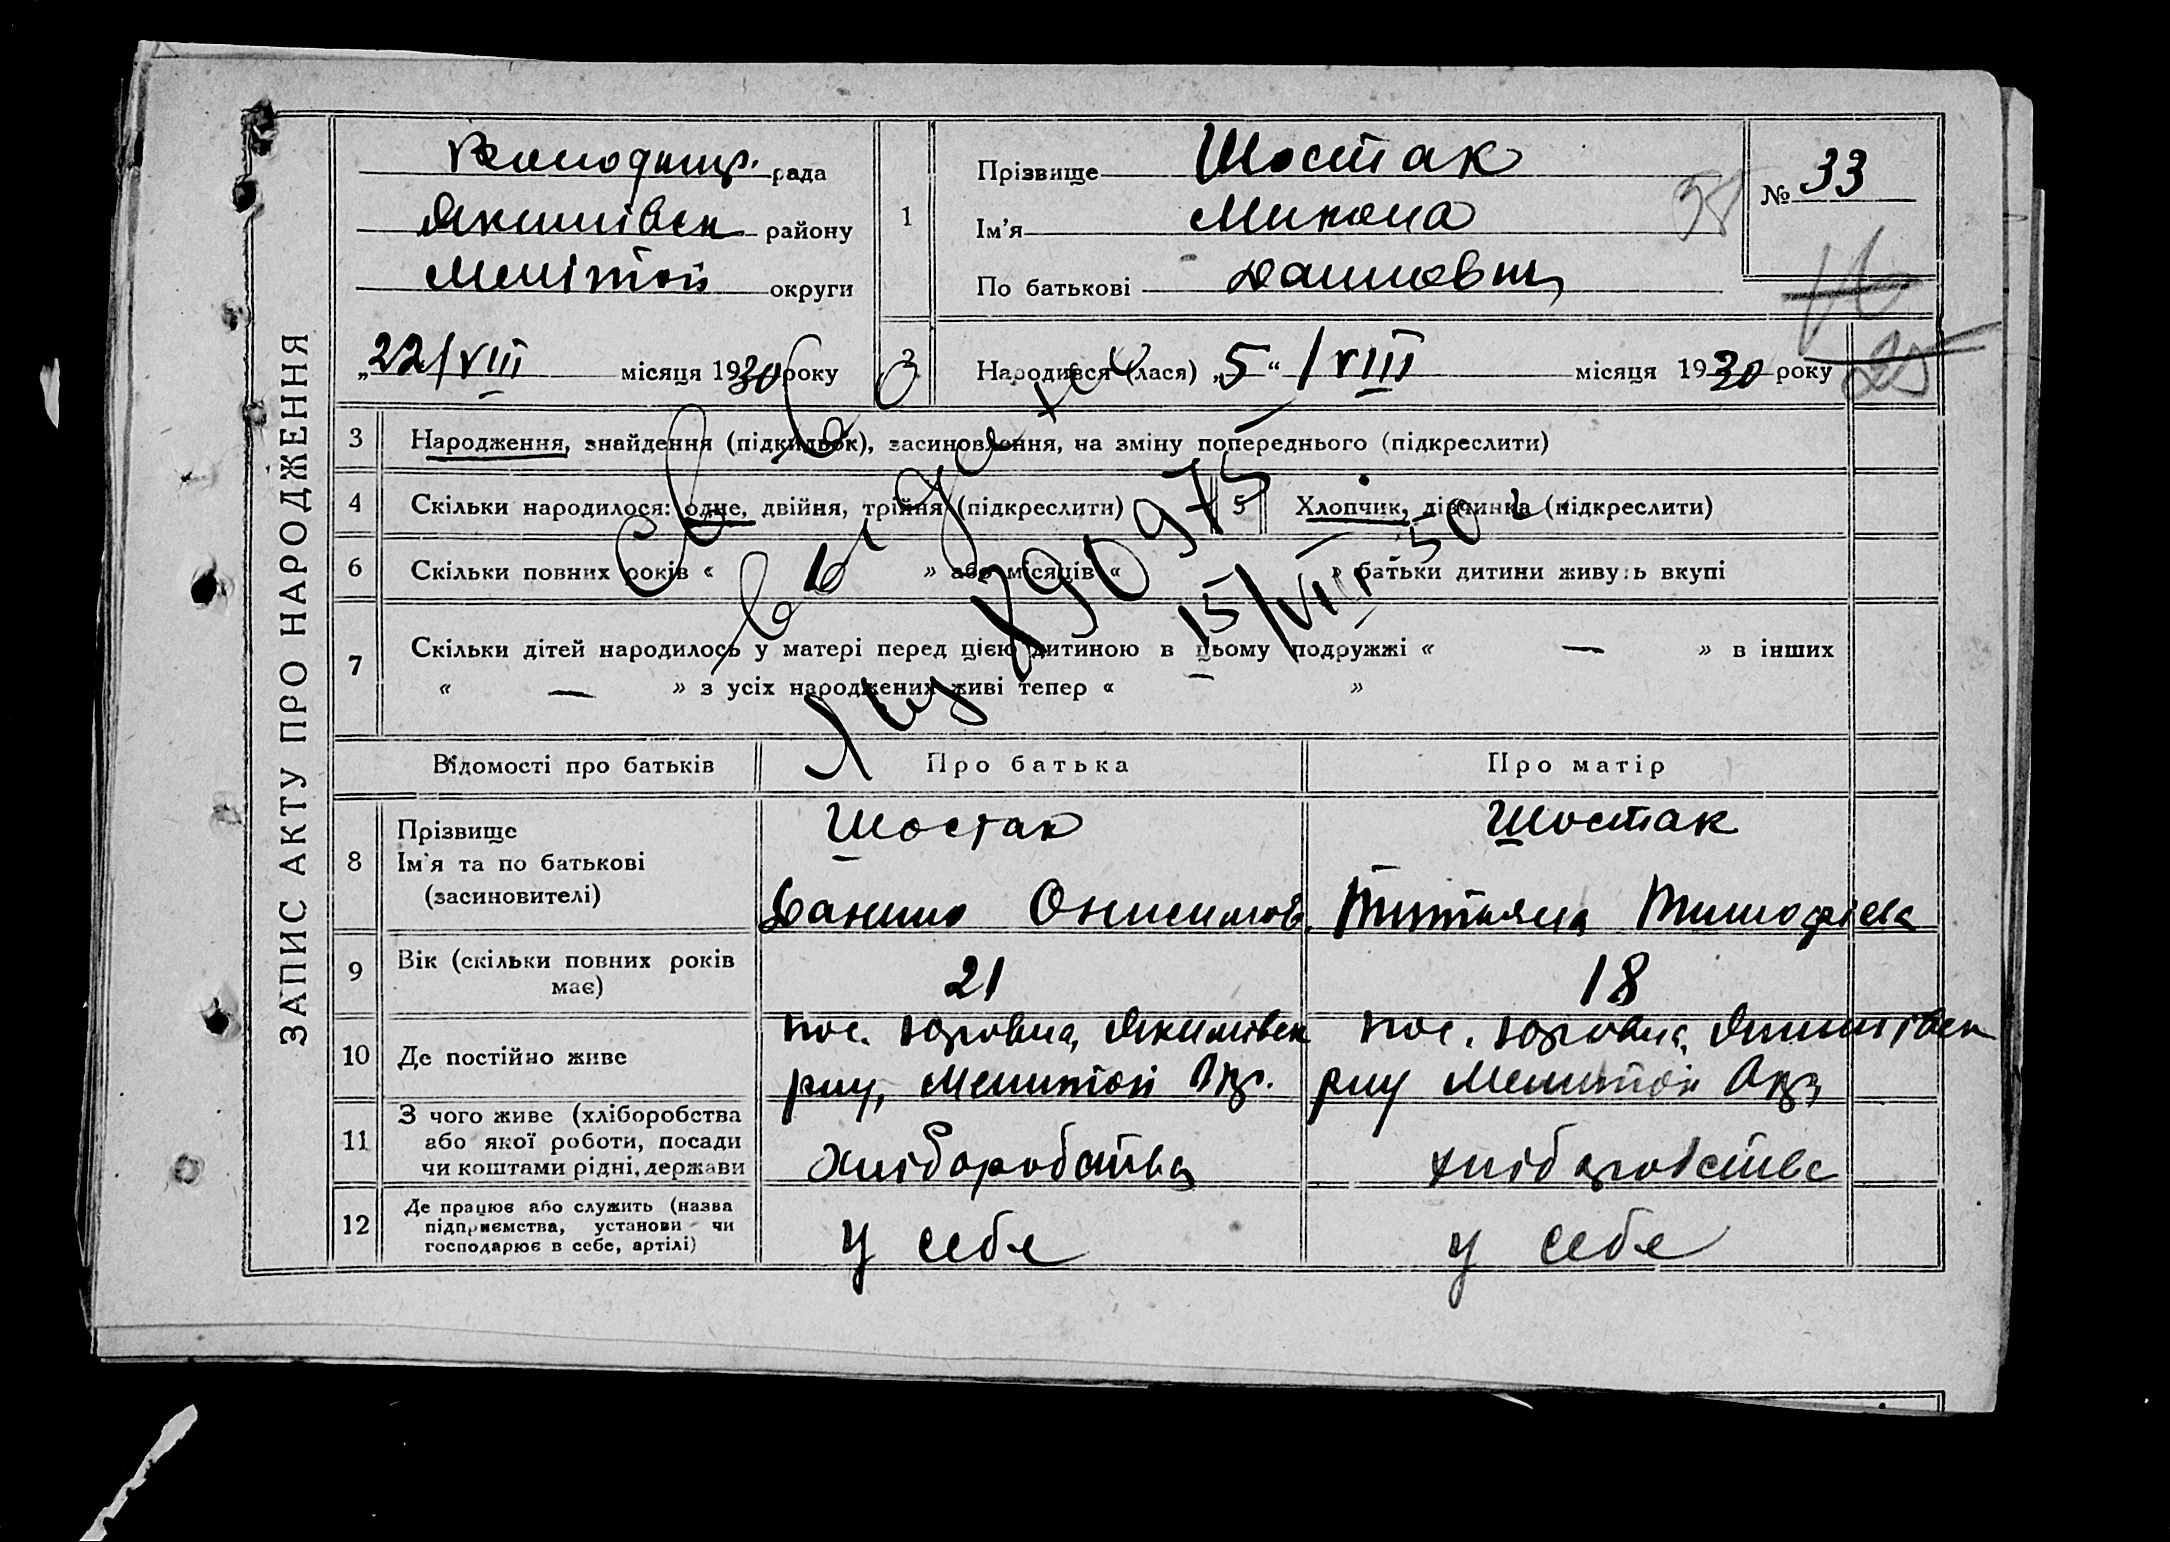 ЗАПИС АКТУ ПРО НАРОДЖЕННЯ
рада
Якимівськ району
Мелітоп округи
„22/VIII місяця 1930 року
1
Прізвище Шостак
Ім’я Микола
По батькові Данилович
№ 33
2
Народився (лася) „5“ /VIII місяця 1930 року
25
3 Народження, знайдення (підкидьок), засиновлення, на зміну попереднього (підкреслити)
4 Скільки народилося: одне, двійня, трійня (підкреслити)
5 Хлопчик, дівчинка (підкреслити)
6 Скільки повних років « » або місяців « » батьки дитини живуть вкупі
7 Скільки дітей народилось у матері перед цією дитиною в цьому подружжі « — » в інших
« — » з усіх народжених живі тепер « »
890975
15/VIII 50
Відомості про батьків Про батька Про матір
8 Прізвище
Ім’я та по батькові
(засиновителі)
Шостак
Данило Онисимов.
Шостак
Титяна Тимофієва
9 Вік (скільки повних років
має)
21
18
10 Де постійно живе
пос. Якимівськ
р-ну, Мелитоп Окр.
пос. Якимівськ
р-ну Мелитоп Окр
11 З чого живе (хліборобства
або якої роботи, посади
чи коштами рідні, держави
Хліборобства
хліборобства
12 Де працює або служить (назва
підприємства, установи чи
господарює в себе, артілі)
У себе
у себе